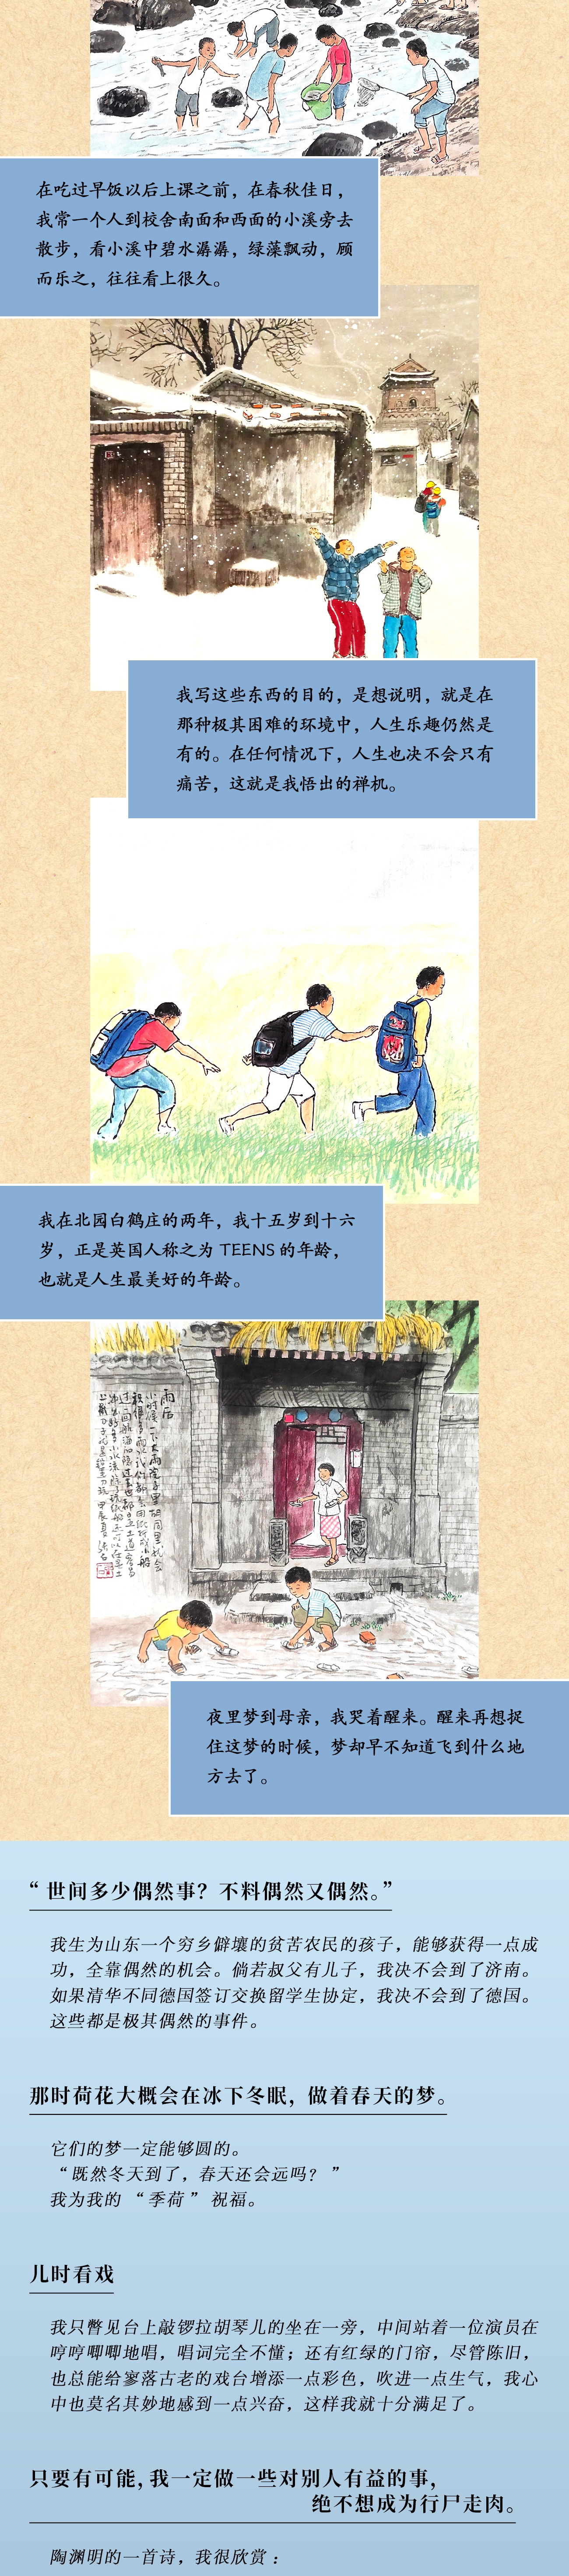 在吃过早饭以后上课之前，在春秋佳日，
我常一个人到校舍南面和西面的小溪旁去
散步，看小溪中碧水潺潺，绿藻飘动，顾
而乐之，往往看上很久。
我写这些东西的目的，是想说明，就是在
那种极其困难的环境中，人生乐趣仍然是
有的。在任何情况下，人生也决不会只有
痛苦，这就是我悟出的禅机。
我在北园白鹤庄的两年，我十五岁到十六
岁，正是英国人称之为 TEENS 的年龄，
也就是人生最美好的年龄。
雨后
夜里梦到母亲，我哭着醒来。醒来再想捉
住这梦的时候，梦却早不知道飞到什么地
方去了。
“世间多少偶然事？不料偶然又偶然。”
我生为山东一个穷乡僻壤的贫苦农民的孩子，能够获得一点成
功，全靠偶然的机会。倘若叔父有儿子，我决不会到了济南。
如果清华不同德国签订交换留学生协定，我决不会到了德国。
这些都是极其偶然的事件。
那时荷花大概会在冰下冬眠，做着春天的梦。
它们的梦一定能够圆的。
“既然冬天到了，春天还会远吗？”
我为我的“季荷”祝福。
儿时看戏
我只瞥见台上敲锣拉胡琴儿的坐在一旁，中间站着一位演员在
哼哼唧唧地唱，唱词完全不懂；还有红绿的门帘，尽管陈旧，
也总能给寥落古老的戏台增添一点彩色，吹进一点生气，我心
中也莫名其妙地感到一点兴奋，这样我就十分满足了。
只要有可能，我一定做一些对别人有益的事，
绝不想成为行尸走肉。
陶渊明的一首诗，我很欣赏：